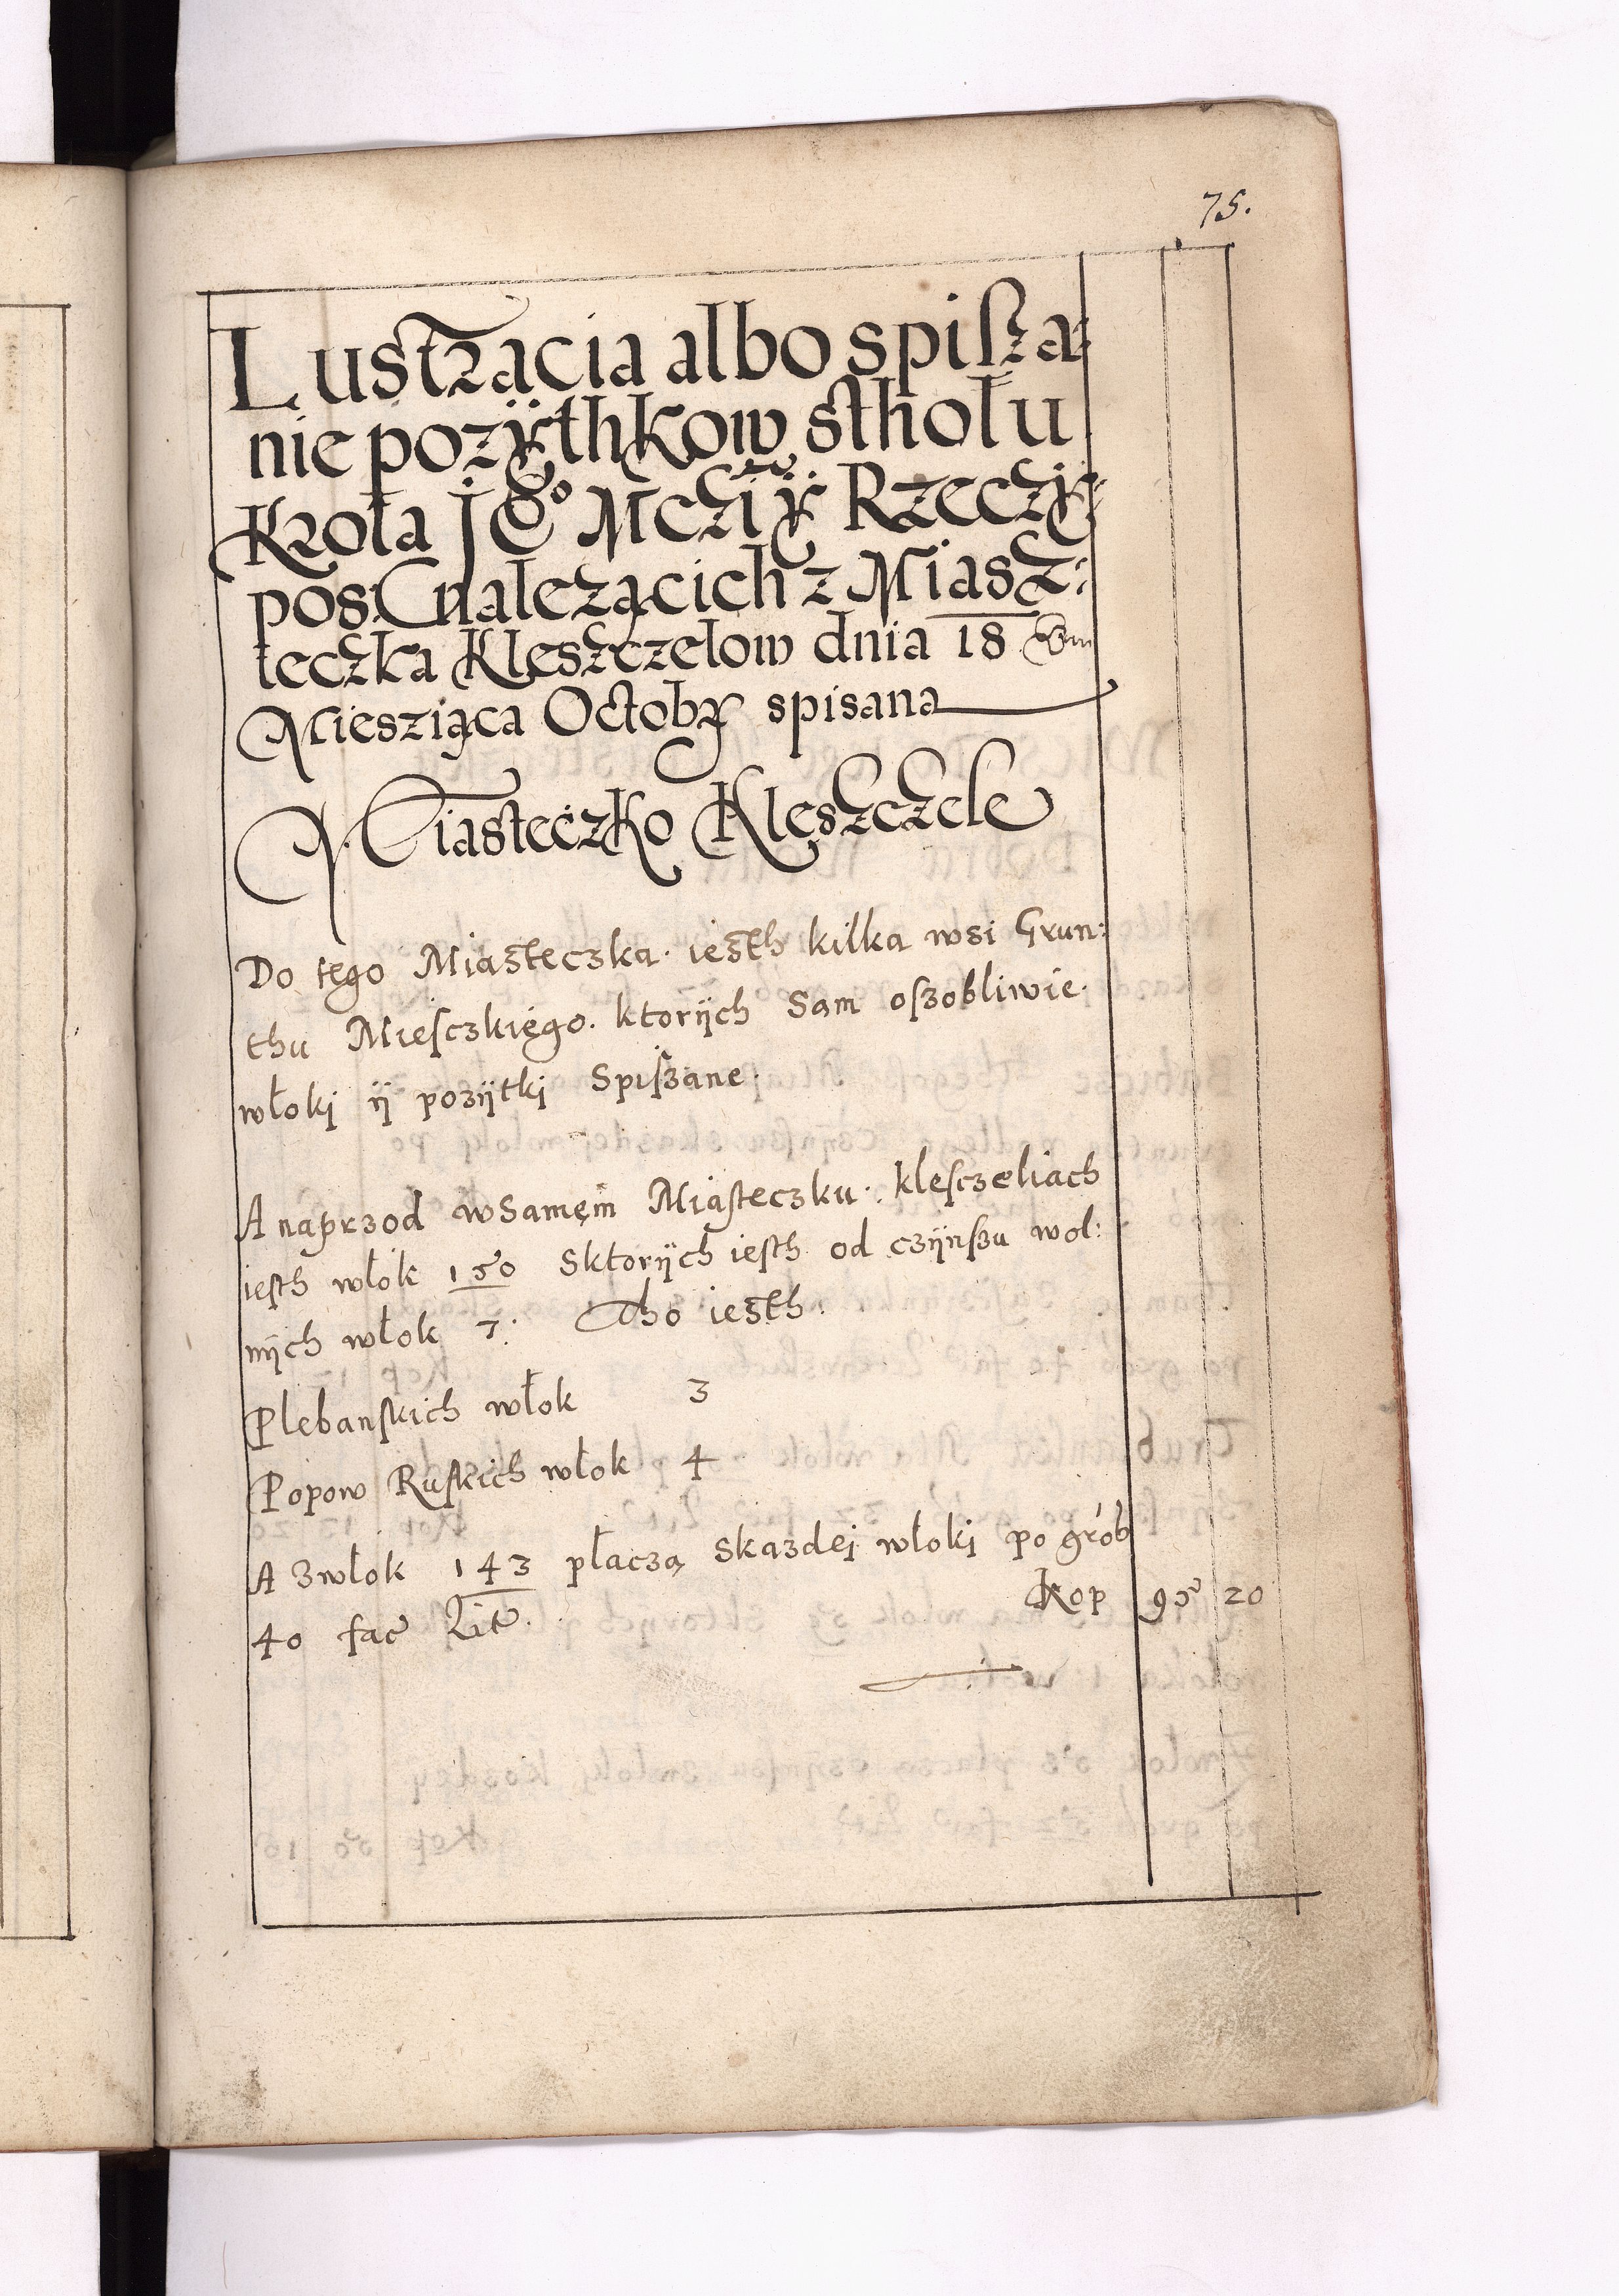 75.
Lustracia albo spisza-
nie pozÿthkow stholu
Krola JEo Mczi ÿ Rzeczÿ-
pos: nalezącich z Miasz-
teczka Kleszczelow dnia 18
Miesziąca Octobr spisana
Miasteczko Kleszczele
Do tego Miasteczka. iesth kilka wsi Grun:
thu Miesczkięgo. ktorÿch Sam oszobliwie.
włokj ÿ pozÿtkj Spiszane.
A naprzod wSamęm Miasteczku. klesczeliach
iesth włok 150 Sktorÿch iesth od czÿnszu wol:
nÿch włok 7: Tho iesth.
Plebanskich włok 3
Popow Ruskich włok 4
A zwłok 143 płaczą Skazdej włokj po grob
40 fac Lit. Kop 95 20